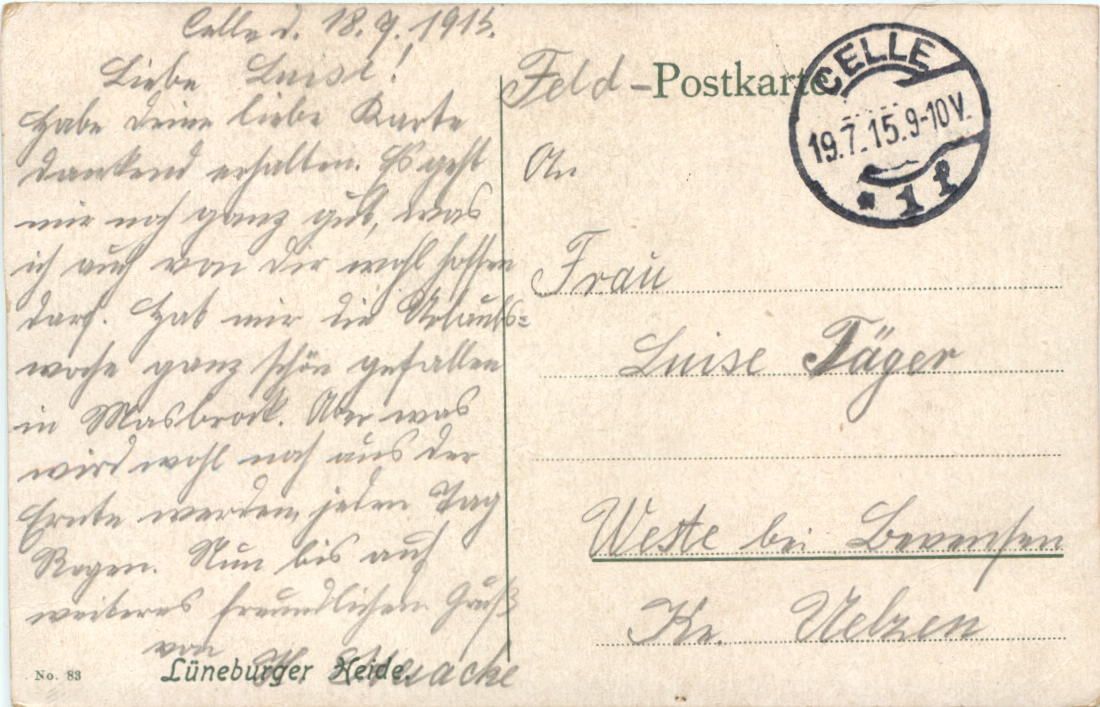 Celle d. 18.7.1915.
Liebe Luise!
Habe deine liebe Karte
dankend erhalten. Es geht
mir noch ganz gut, was
ich auch von dir wohl hoffen
darf. Hat mir die Urlaubs=
woche ganz schön gefallen
in Masbrock. Aber was
wird wohl noch aus der
Ernte werden, jeden Tag
Regen. Nun bis auf
weiteres freundlichen Gruß
von
Feld-Postkarte
CELLE
19.7.15.9-10V.
* 1 f
An
Frau
Luise Jäger
Weste bei Bevensen
Kr. Uelzen
No. 83
Lüneburger Heide.